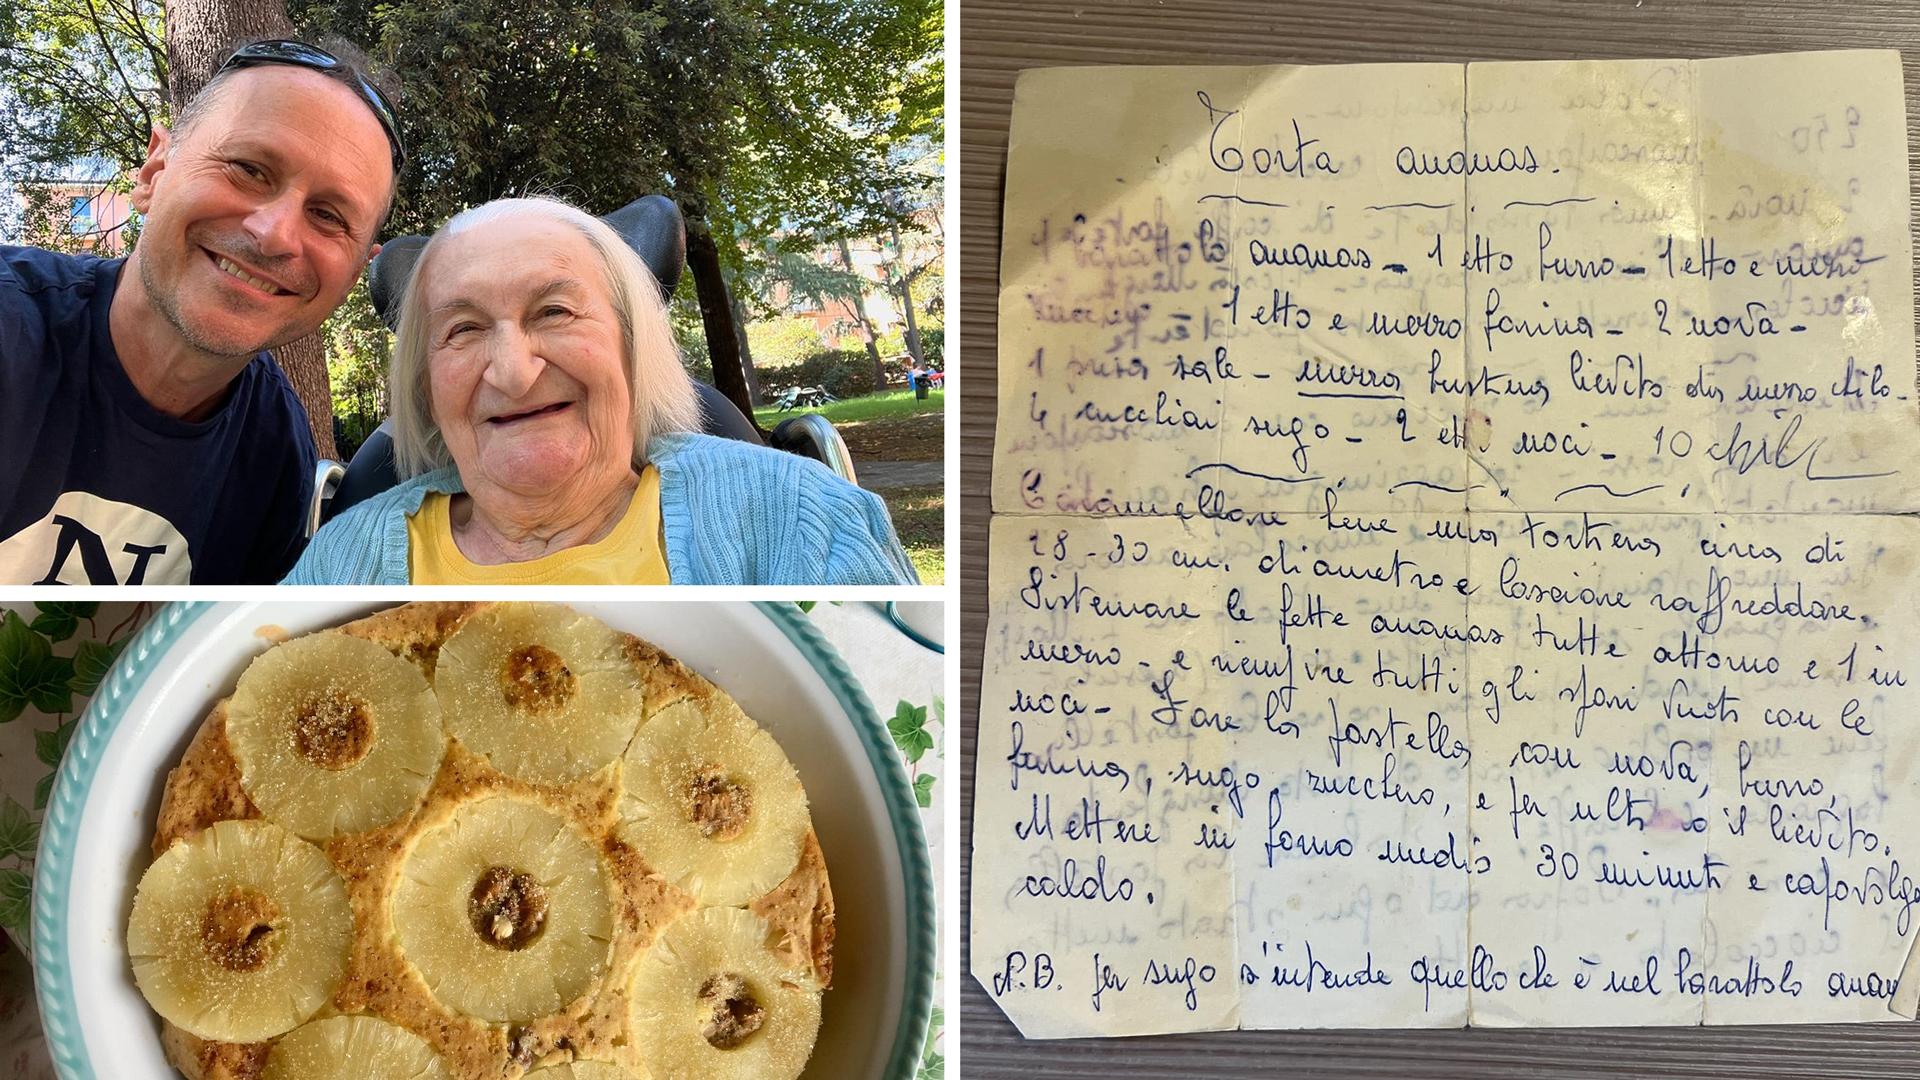 N
Torta ananas.
ananas - 1 etto burro - 1 etto e mezzo
1 etto e mezzo farina - 2 uova -
1 presa sale - mezza bustina lievito da mezzo chilo -
4 cucchiai sugo - 2 etti noci - 10
Caramellare bene una tortiera circa di
28-30 cm. diametro e lasciare raffreddare.
Sistemare le fette ananas tutte attorno e 1 in
mezzo - e riempire tutti gli spazi vuoti con le
noci - Fare la pastella con uova, burro,
farina, sugo zucchero, e per ultimo il lievito.
Mettere in forno medio 30 minuti e capovolge
caldo.
N.B. per sugo s'intende quello che è nel barattolo anan